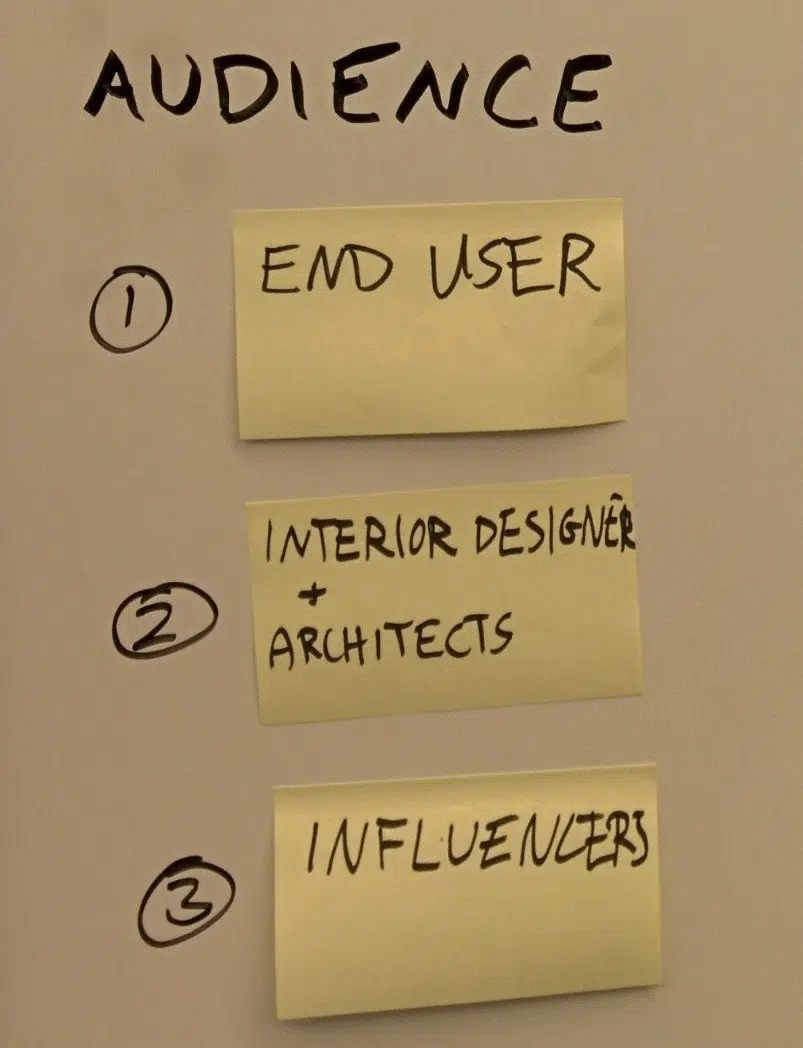 AUDIENCE
1
END USER
2
INTERIOR DESIGNER
+
ARCHITECTS
3
INFLUENCERS